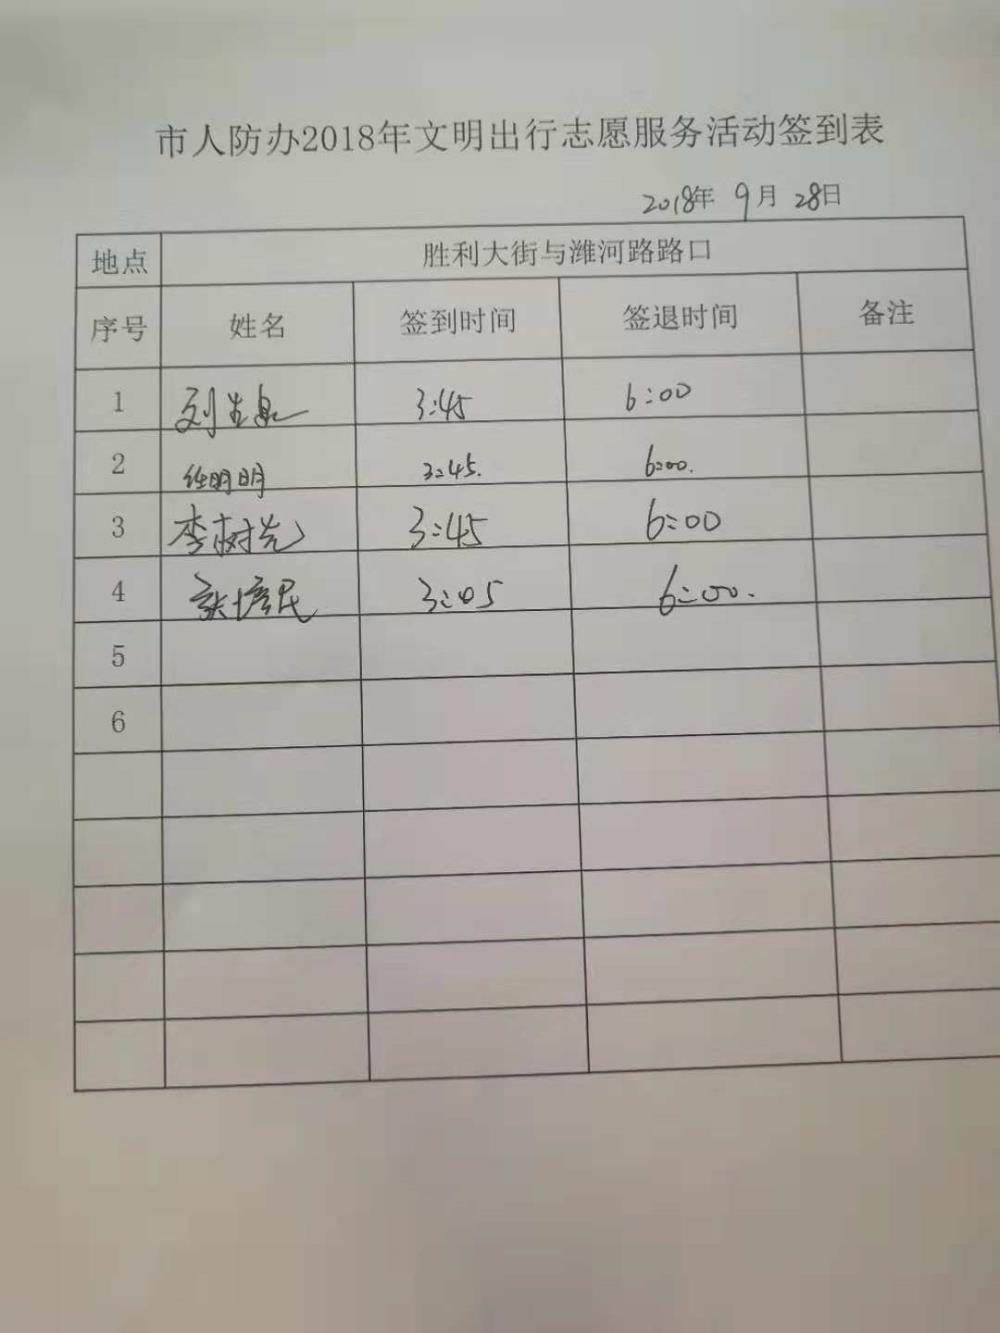 市人防办2018年文明出行志愿服务活动签到表
2018年 9月 28日
地点 胜利大街与潍河路路口
序号 姓名 签到时间 签退时间 备注
1 刘 3:45 6:00
2 任明明 3:45. 6:00.
3 李树先 3:45 6:00
4 民 3:05 6:00.
5
6